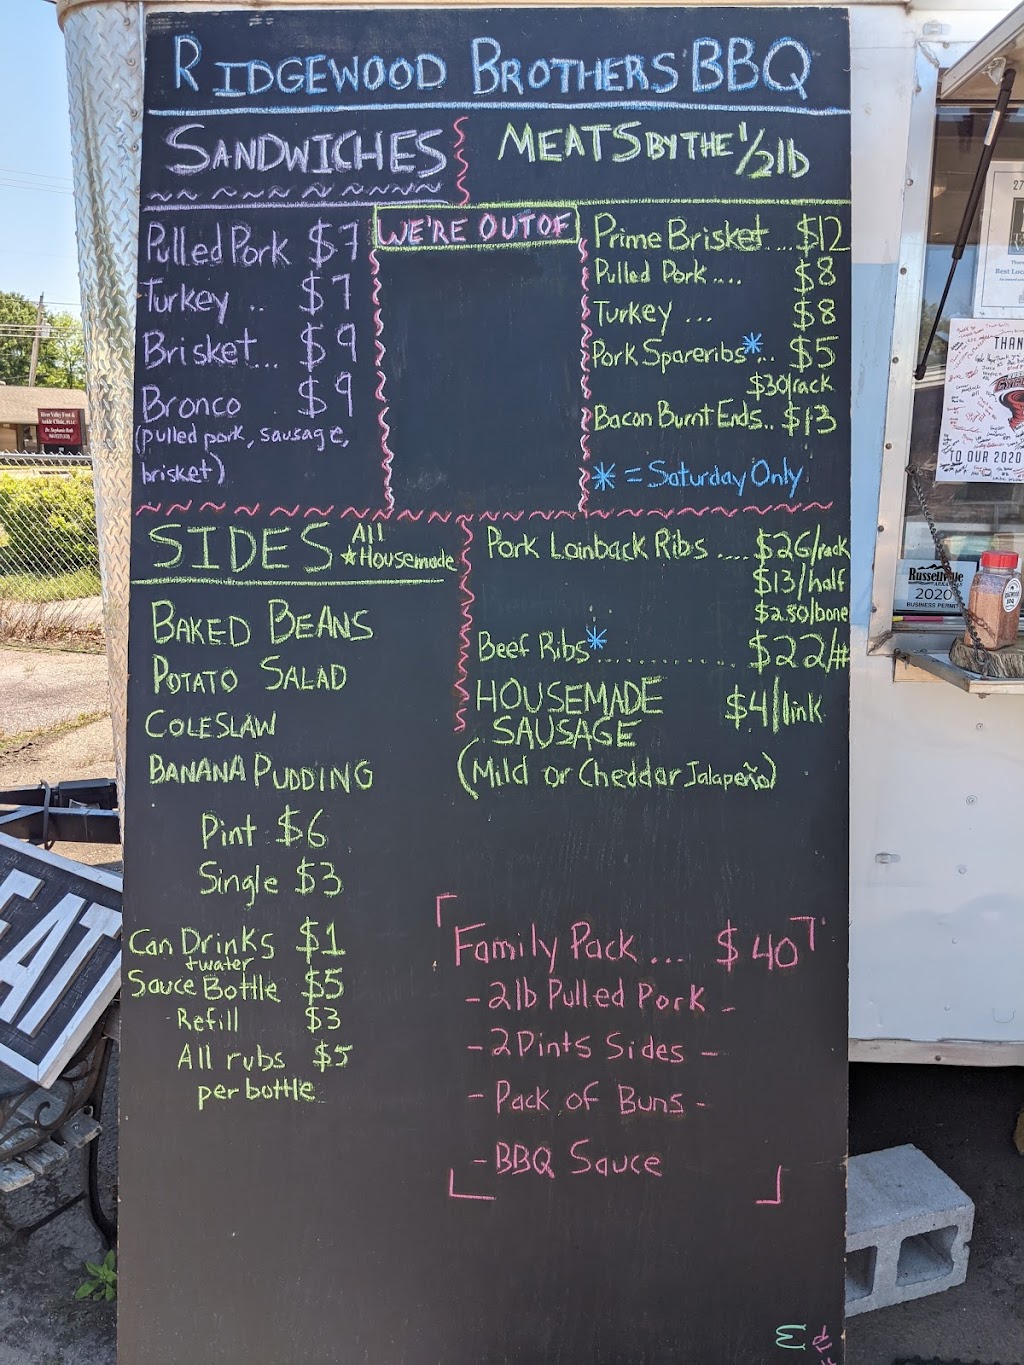 RIDGEWOOD BROTHERS BBQ
SANDWICHES
Pulled Pork $7
Turkey .. $7
Brisket... $9
Bronco . $9
(pulled pork, sausage,
brisket)
WE'RE OUT OF
MEATS BY THE 1/2 lb
Prime Brisket.... $12
Pulled Pork.... $8
Turkey ... $8
Pork Spareribs*... $5
$30/rack
Bacon Burnt Ends.. $13
* = Saturday Only
SIDES
All
★Housemade
BAKED BEANS
POTATO SALAD
COLESLAW
BANANA PUDDING
Pint $6
Single $3
Can Drinks $1
+water
Sauce Bottle $5
-Refill $3
All rubs $5
per bottle
Pork Loinback Ribs ..... $26/rack
$13/half
$2.50/bone
Beef Ribs*............ $22/#
HOUSEMADE
SAUSAGE $4/link
(Mild or Cheddar Jalapeño)
Family Pack ... $40
-2lb Pulled Pork -
-2 Pints Sides -
- Pack of Buns -
-BBQ Sauce
EAT
River Valley Foot &
Ankle Clinic, PLLC
27
Best Loc
THAN
TO OUR 2020
Russellville
ARKANSAS
2020
BUSINESS PERMIT
RIDGEWOOD
BBQ